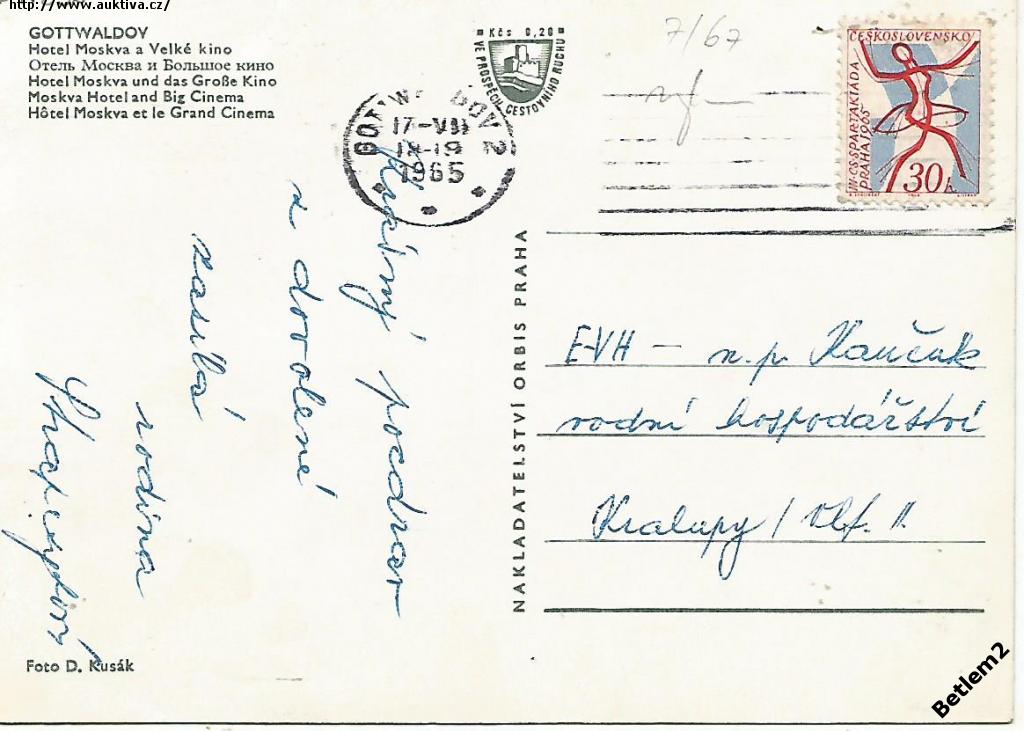 http://www.auktiva.cz/
GOTTWALDOV
Hotel Moskva a Velké kino
Отель Москва и Большое кино
Hotel Moskva und das Große Kino
Moskva Hotel and Big Cinema
Hôtel Moskva et le Grand Cinema
Kčs 0,20
VE PROSPĚCH CESTOVNÍHO RUCHU
GOTTWALDOV 2
17-VII
18-19
1965
7/67
ČESKOSLOVENSKO
III.CS.SPARTAKIÁDA
PRAHA 1965
30 h.
pozdrav
z dovolené
zasílá
rodina
NAKLADATELSTVÍ ORBIS PRAHA
E-VH – n.p. Kaučuk
vodní hospodářství
Kralupy / Vlt. II.
Foto D. Kusák
Betlem2